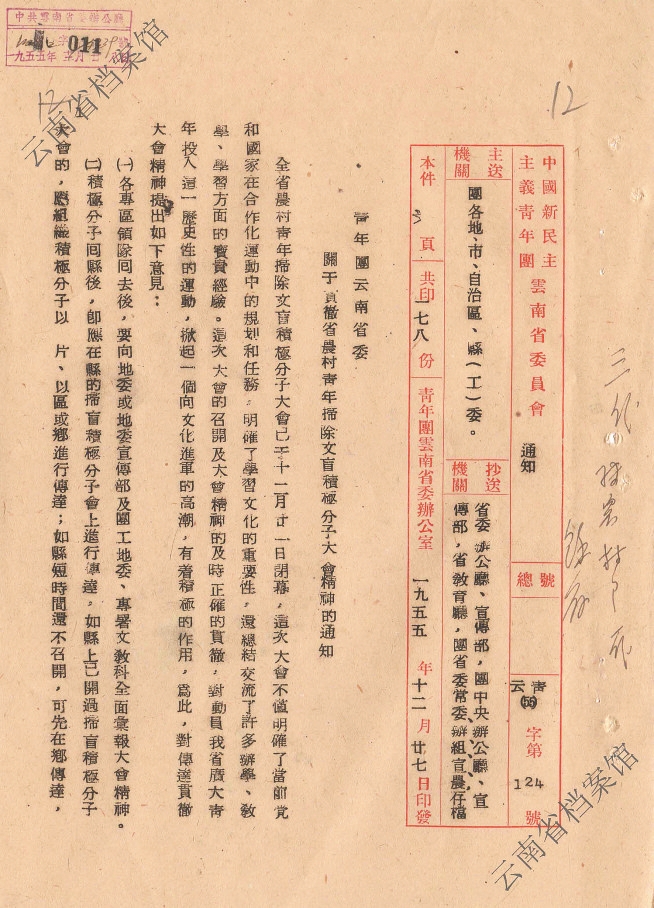 中共雲南省委辦公廳
字 號
011
一九五五年 月 日
云南省档案馆
12
12
三代
中國新民主
主義青年團
雲南省委員會
通知
總號
青云(55)字第124號
主送
機關
團各地、市、自治區、縣(工)委。
抄送
機關
省委辦公廳、宣傳部,團中央辦公廳、宣
傳部,省敎育廳,團省委常委、辦、組、宣、農、仔、檔
本件 3 頁 共印 一七八 份 青年團雲南省委辦公室 一九五五 年 十二 月 廿七 日印發
青年團云南省委
關于貫徹省農村青年掃除文盲積極分子大會精神的通知
全省農村青年掃除文盲積極分子大會已于十一月廿一日閉幕,這次大會不僅明確了當前党
和國家在合作化運動中的規划和任務,明確了學習文化的重要性,還總結交流了許多辦學、敎
學、學習方面的寶貴經驗。這次大會的召開及大會精神的及時正確的貫徹,對動員我省廣大青
年投入這一歷史性的運動,掀起一個向文化進軍的高潮,有着積極的作用,爲此,對傳達貫徹
大會精神提出如下意見:
㈠各專區領隊囘去後,要向地委或地委宣傳部及團工地委、專署文敎科全面彙報大會精神。
㈡積極分子囘縣後,卽應在縣的掃盲積極分子會上進行傳達,如縣上已開過掃盲積極分子
大會的,應組織積極分子以 片、以區或鄕進行傳達;如縣短時間還不召開,可先在鄕傳達,
云南省档案馆